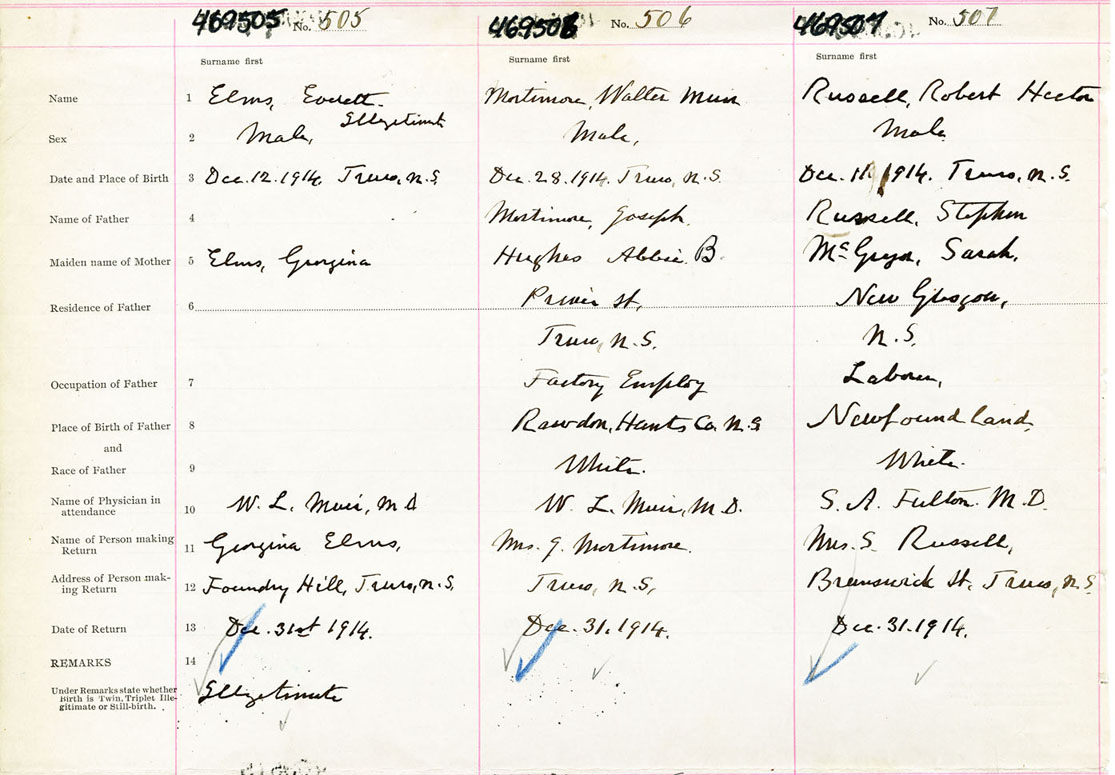 469505 No. 505 469506 No. 506 469507 No. 507
Surname first Surname first Surname first
Name 1 Elms, Everett. Mortimore, Walter Muir Russell, Robert Hector
Illegitimate
Sex 2 Male, Male, Male
Date and Place of Birth 3 Dec. 12. 1914. Truro, N.S. Dec. 28. 1914. Truro, N.S. Dec. 11, 1914. Truro, N.S.
Name of Father 4 Mortimore, Joseph. Russell, Stephen
Maiden name of Mother 5 Elms, Georgina Hughes Abbie. B. McGregor, Sarah,
Residence of Father 6 St, New Glasgow,
Truro, N.S. N.S.
Occupation of Father 7 Factory Employ Laborer,
Place of Birth of Father 8 Rawdon, Hants Co. N.S. Newfoundland,
and
Race of Father 9 White. White.
Name of Physician in
attendance 10 W. L. Muir, M.D W. L. Muir, M.D. S. A. Fulton. M.D.
Name of Person making
Return 11 Georgina Elms, Mrs. J. Mortimore. Mrs. S. Russell,
Address of Person mak-
ing Return 12 Foundry Hill, Truro, N.S. Truro, N.S, Brunswick St, Truro, N.S.
Date of Return 13 Dec. 31st 1914. Dec. 31, 1914. Dec. 31. 1914.
REMARKS 14
Under Remarks state whether
Birth is Twin, Triplet Ille-
gitimate or Still-birth.
Illegitimate